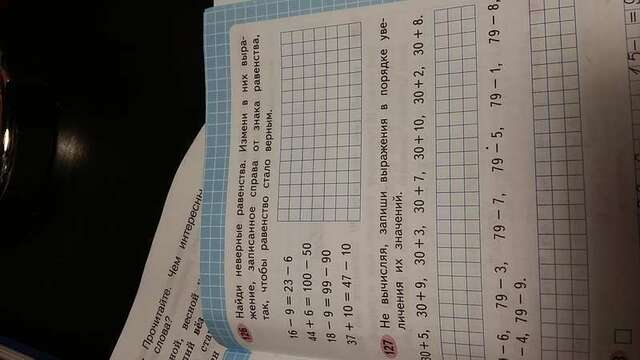 Прочитайте. Чем интересны
слова?
ной, весной
126 Найди неверные равенства. Измени в них выра-
жение, записанное справа от знака равенства,
так, чтобы равенство стало верным.
16 − 9 = 23 − 6
44 + 6 = 100 − 50
18 − 9 = 99 − 90
37 + 10 = 47 − 10
127 Не вычисляя, запиши выражения в порядке уве-
личения их значений.
30 + 5, 30 + 9, 30 + 3, 30 + 7, 30 + 10, 30 + 2, 30 + 8.
9 − 6, 79 − 3, 79 − 7, 79 − 5, 79 − 1, 79 − 8,
− 4, 79 − 9.